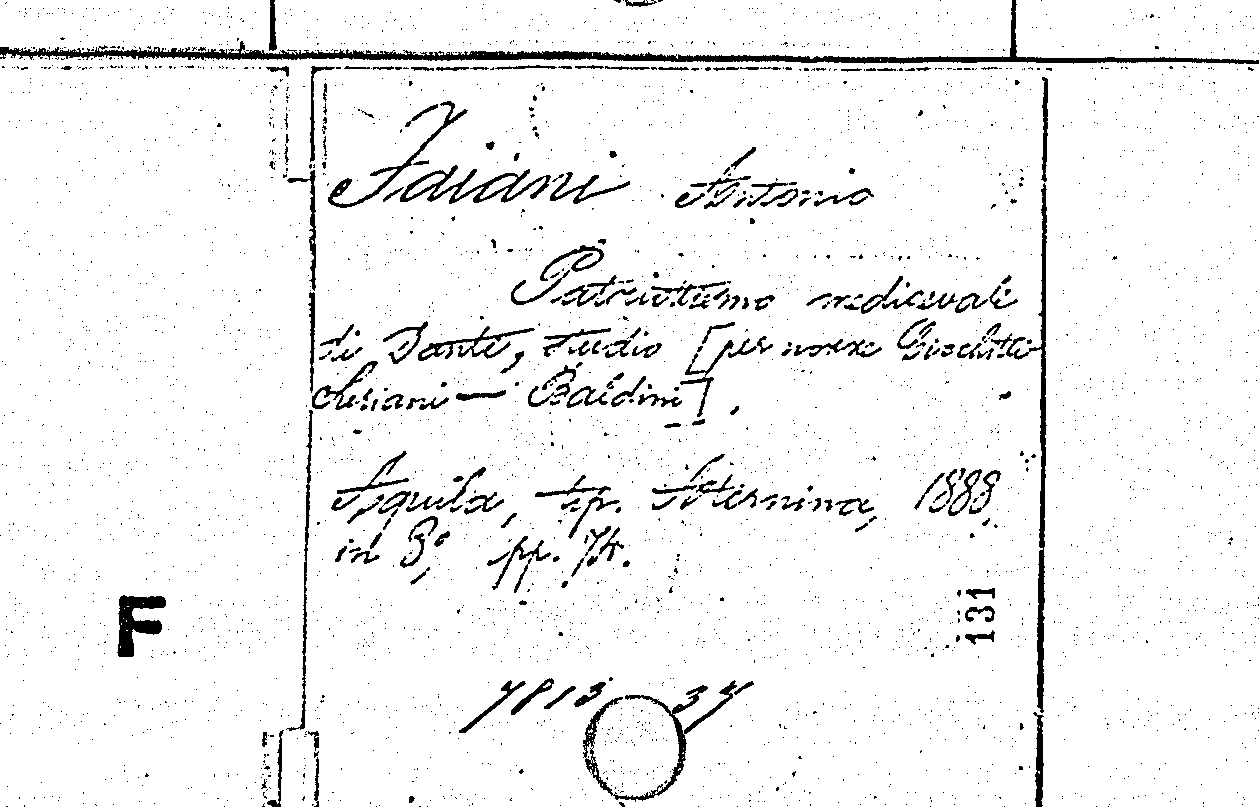 Faiani Antonio
Patriottismo medievale
di Dante, studio [per nozze
— Baldini].
Aquila, tip. Aternina, 1888,
in 8°, pp. 74.
F
131
7813 37